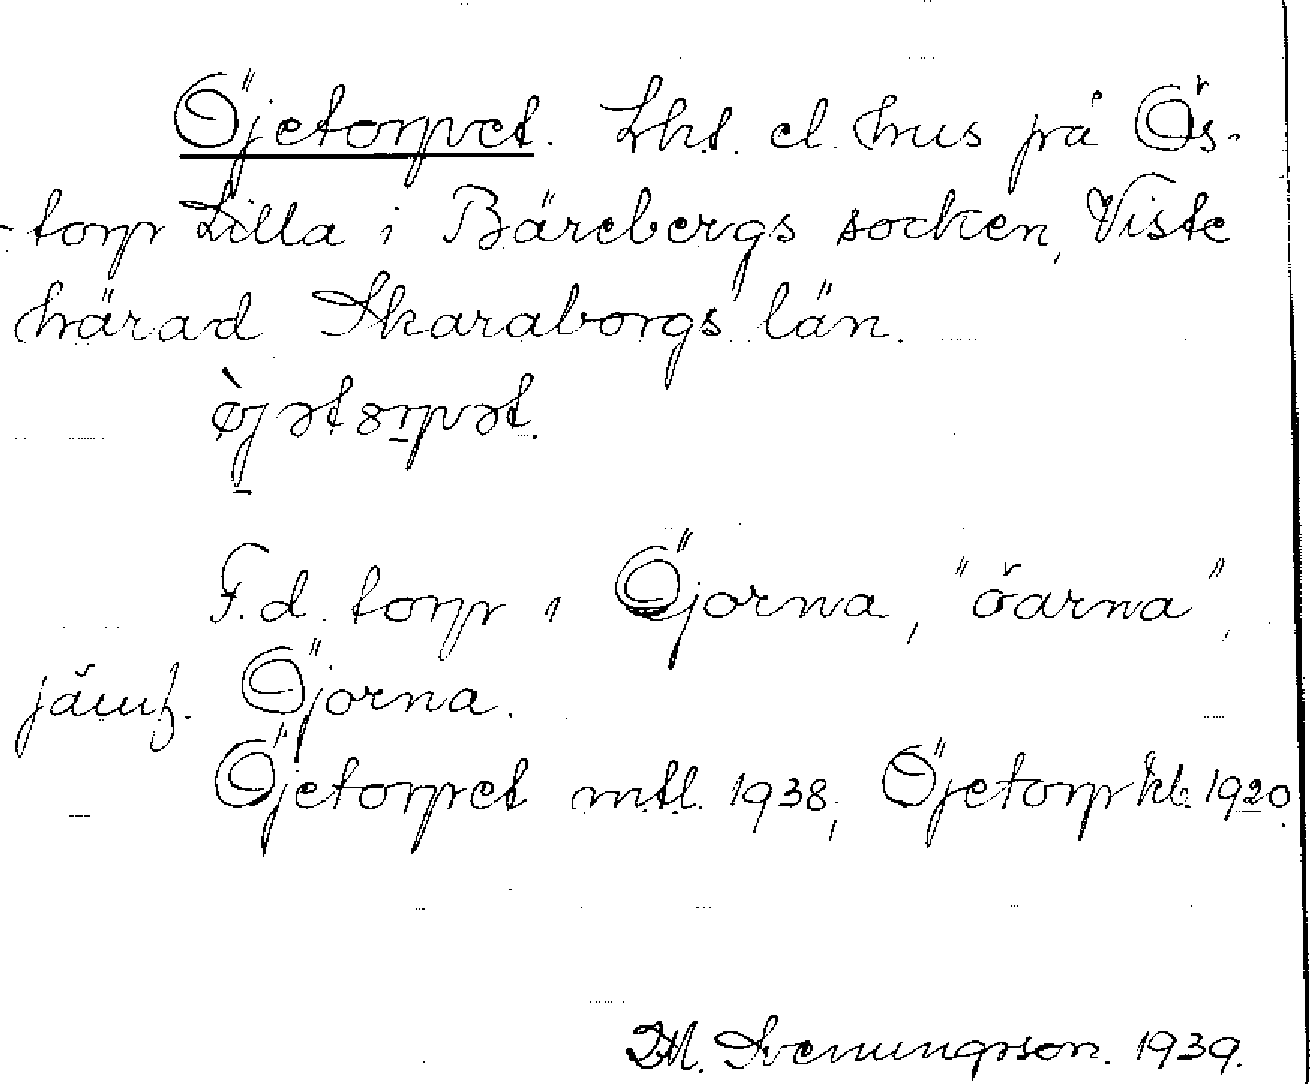 Öjetorpet. Lht. el. hus på Ös-
torp Lilla i Bärebergs socken, Viste
härad Skaraborgs län.
F.d. torp i Öjorna, "öarna",
jämf. Öjorna.
Öjetorpet mtl. 1938, Öjetorp kb. 1920.
M. Svenungsson. 1939.